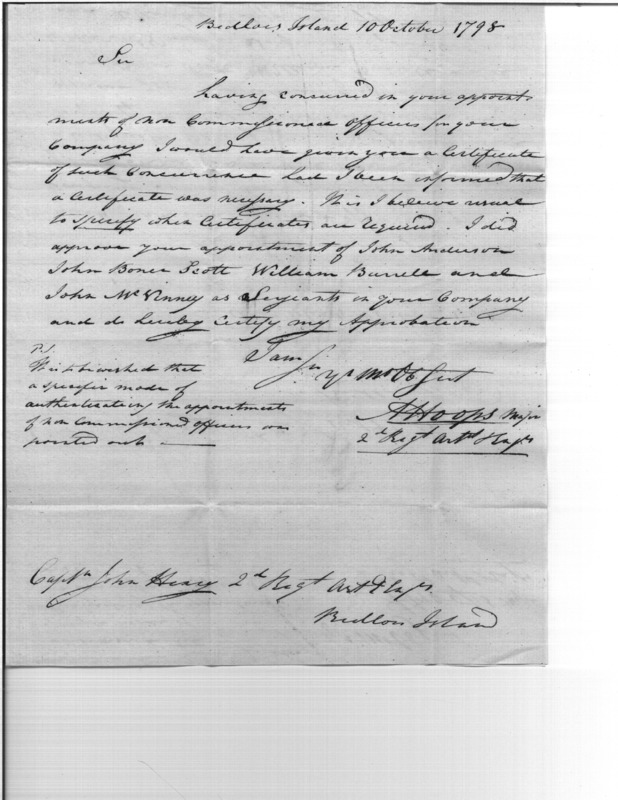 Bedloes Island 10 October 1798
Sir
Having concurred in your appoint
ments of non Commissioned officers for your
Company I would have given you a Certificate
of such Concurrence had I been informed that
a Certificate was necessary. It is I believe usual
to specify when Certificates are required. I did
approve your appointment of John Anderson
John Boner Scott William Burrell and
John McKinney as Serjeants in your Company
and do hereby Certify my Approbation
I am Sir
Yr Mo Ob Sert
AHoops Major
2d Regt Arts & Engrs
PS
It is to be wished that
a specific mode of
authenticating the appointments
of non Commissioned officers was
pointed out
Captn John Henry 2d Regt Art & Engrs
Bedloes Island